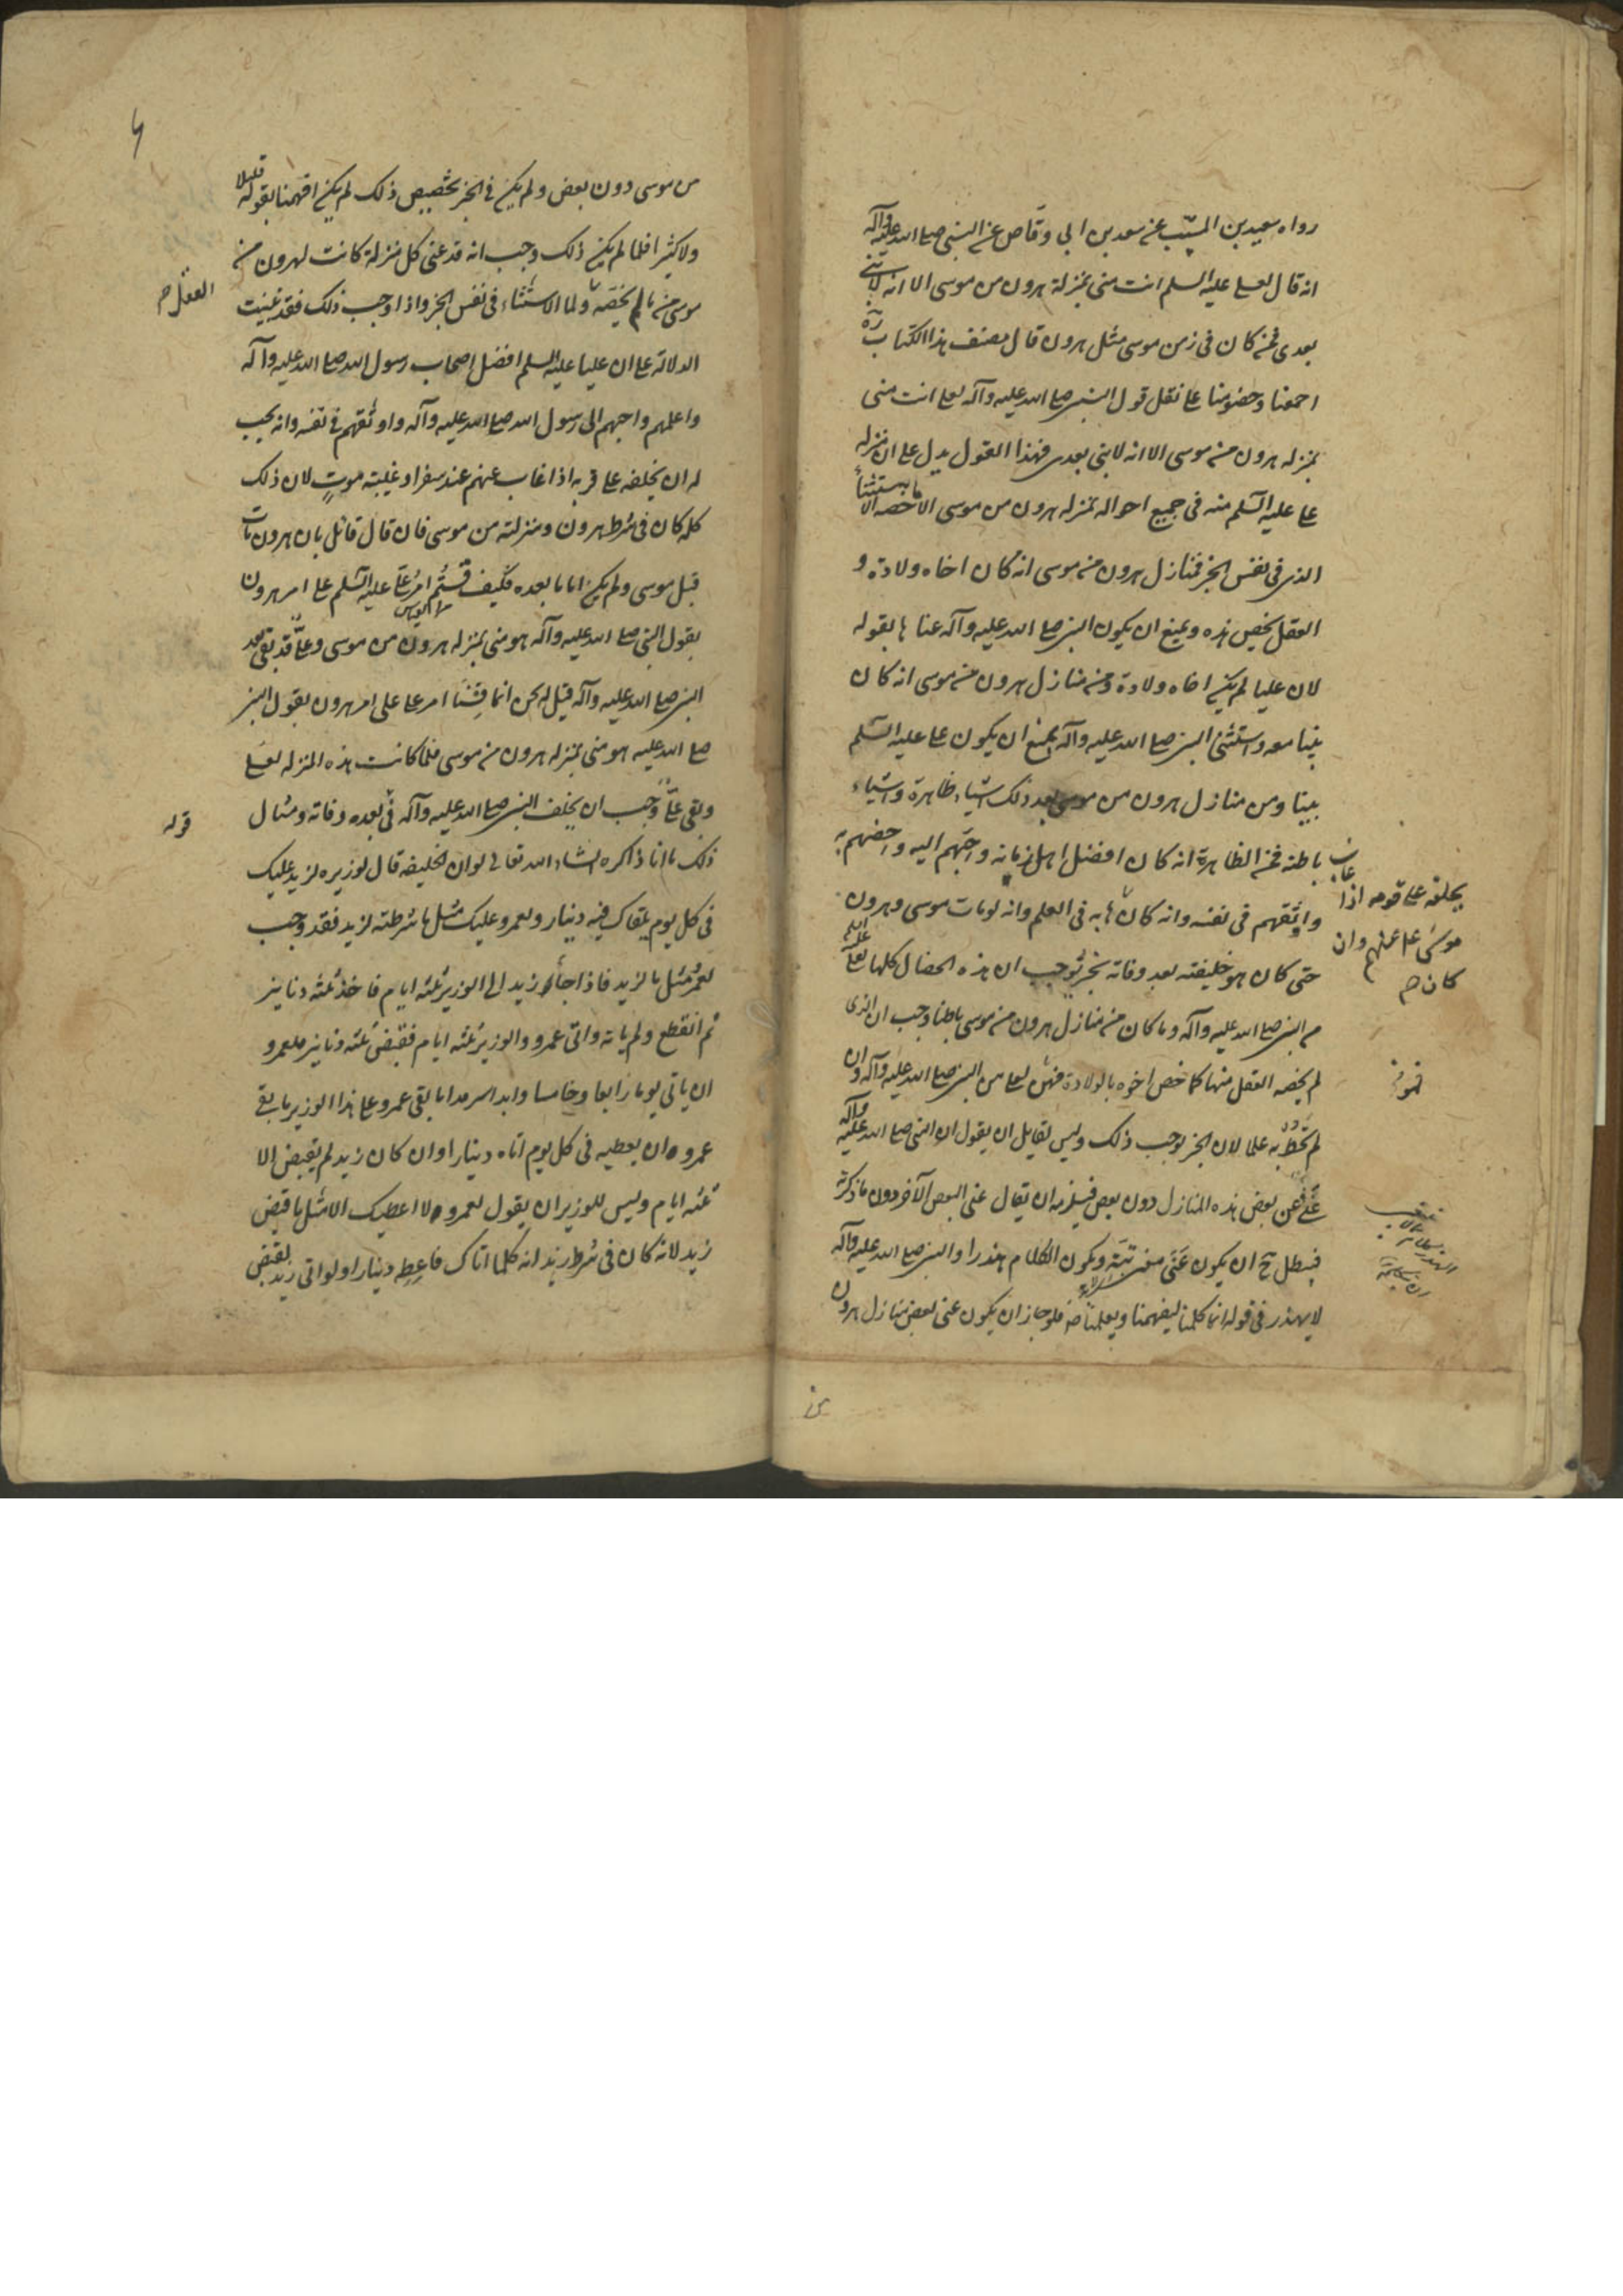 رواه سعيد بن المسيّب عن سعد بن ابي وقّاص عن النبي صلى الله عليه وآله
انه قال لعلى عليه السلم انت منى بمنزلة هرون من موسى الا انه لا نبي
بعدى فمن كان فى زمن موسى مثل هرون قال مصنف هذا الكتاب ره
اجمعنا وخصومنا على نقل قول النبى صلى الله عليه وآله لعلى انت منى
بمنزله هرون من موسى الا انه لا نبى بعدى فهذا القول يدل على ان منزله
على عليه السّلم منه فى جميع احواله بمنزله هرون من موسى الا ما خصه الاستثناء
الذى فى نفس الخبر فمنازل هرون من موسى انه كان اخاه ولادة و
العقل يخص هذه ويمنع ان يكون النبى صلى الله عليه وآله عناها بقوله
لان عليا لم يكن اخاه ولادة ومن منازل هرون من موسى انه كان
نبيا معه واستثنى النبى صلى الله عليه وآله يمنع ان يكون على عليه السّلم
نبيا ومن منازل هرون من موسى بعد ذلك اشياء ظاهرة واشياء
باطنه فمن الظاهرة انه كان افضل اهل زمانه واحبّهم اليه واخصهم به
واوثقهم فى نفسه وانه كان يخلفه على قومه اذا غاب
موسى ع عنهم وان كان
بابه فى العلم وانه لو مات موسى وهرون
حتى كان هو خليفته بعد وفاته بخبر يوجب ان هذه الخصال كلها لعلى عليه السلم
من النبى صلى الله عليه وآله وما كان من منازل هرون من موسى باطنا وجب ان الذى
لم يخصه العقل منها كما خص اخوه بالولادة فهى لعلى من النبى صلى الله عليه وآله وان
لم نحط به علما لان الخبر يوجب ذلك وليس لقايل ان يقول ان النبى صلى الله عليه وآله
عنى بعض هذه المنازل دون بعض فيلزمه ان يقال عنى البعض الآخر دون ما ذكرته
فيبطل ح ان يكون عَنَى معنى بتّة ويكون الكلام هذرا والنبى صلى الله عليه وآله
لا يهذر فى قوله لانه انما كلمنا ليفهمنا ويعلمنا فلو جاز ان يكون عنى بعض منازل هرون
من
من موسى دون بعض ولم يكن فى الخبر تخصيص ذلك لم يكن افهمنا بقوله قليلا
ولا كثيرا فلما لم يكن ذلك وجب انه قد عنى كل منزلة كانت لهرون من
موسى مما لم يخصه العقل ولا الاستثناء فى نفس الخبر واذا وجب ذلك فقد ثبتت
الدلالة على ان عليا عليه السلم افضل اصحاب رسول الله صلى الله عليه وآله
واعلمهم واحبهم الى رسول الله صلى الله عليه وآله واوثقهم فى نفسه وانه يجب
له ان يخلفه على قومه اذا غاب عنهم عند سفر او غيبته موتٍ لان ذلك
كله كان فى شرط هرون ومنزلته من موسى فان قال قائل بان هرون مات
قبل موسى ولم يكن اماما بعده فكيف قستم امر علىّ عليه السّلم على امر هرون
بقول النبى صلى الله عليه وآله هو منى بمنزله هرون من موسى وعلىّ قد بقى بعد
النبى صلى الله عليه وآله قيل له نحن انما قِسْنَا امر على على امر هرون بقول النبى
صلى الله عليه هو منى بمنزله هرون من موسى فلما كانت هذه المنزله لعلى
وبقى علىّ وجب ان يخلف النبى صلى الله عليه وآله فى قومه بعد وفاته ومثال
ذلك ما انا ذاكره انشاء الله تعالى لو ان الخليفه قال لوزيره لزيد عليك
فى كل يوم يلقاك فيه دينار ولعمرو عليك مثل ما شرطته لزيد فقد وجب
لعمرو مثل ما لزيد فاذا جاء زيد الى الوزير ثلثه ايام فاخذ ثلثه دنانير
ثم انقطع ولم ياته واتى عمرو والوزير ثلثه ايام فقبض ثلثه دنانير فلعمرو
ان ياتى يوما رابعا وخامسا وابدا سرمدا ما بقى عمرو وعلى هذا الوزير ما بقى
عمرو ان يعطيه فى كل يوم اتاه دينارا وان كان زيد لم يقبض الا
ثلثه ايام وليس للوزير ان يقول لعمرو لا اعطيك الا مثل ما قبض
زيد لانه كان فى شرط زيد انه كلما اتاك فاعطه دينارا ولو اتى زيد لقبض